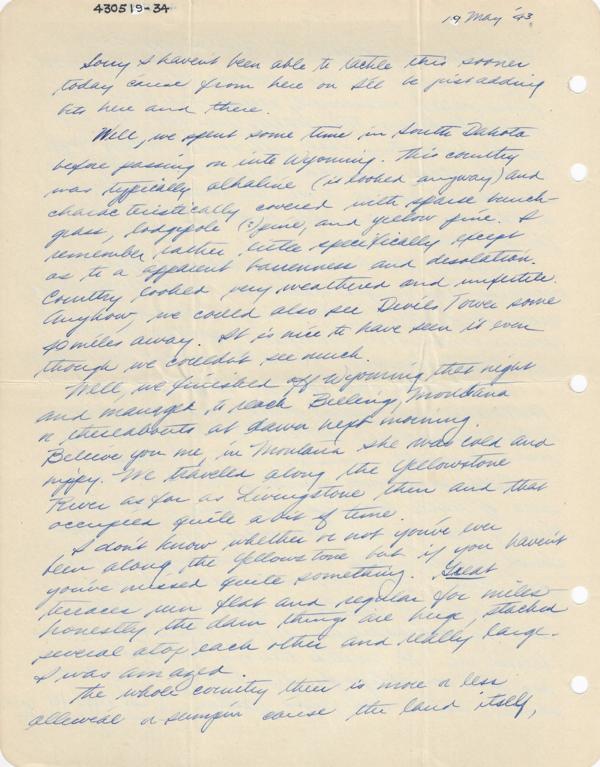 430519-34
19 May '43.
Sorry I haven't been able to tackle this sooner
today cause from here on I'll be just adding
bits here and there.
Well, we spent some time in South Dakota
before passing on into Wyoming. This country
was typically alkaline (is looked anyway) and
characteristically covered with sparse bunch-
grass, lodgepole (?) pine, and yellow pine. I
remember rather little specifically except
as to a apparent barenness and desolation.
Country looked very weathered and infertile.
Anyhow, we could also see Devils Tower some
40 miles away. It is nice to have seen it even
though we couldn't see much.
Well, we finished off Wyoming that night
and managed to reach Billings, Montana
or thereabouts at dawn next morning.
Believe you me, in Montana she was cold and
nippy. We traveled along the Yellowstone
River as far as Livingstone then and that
occupied quite a bit of time.
I don't know whether or not you've ever
been along the Yellowstone but if you haven't
you've missed quite something. Great
terraces run flat and regular for miles
honestly the darn things are huge, stacked
several atop each other and really large.
I was amazed.
The whole country there is more or less
alluvial or sumpin cause the land itself,